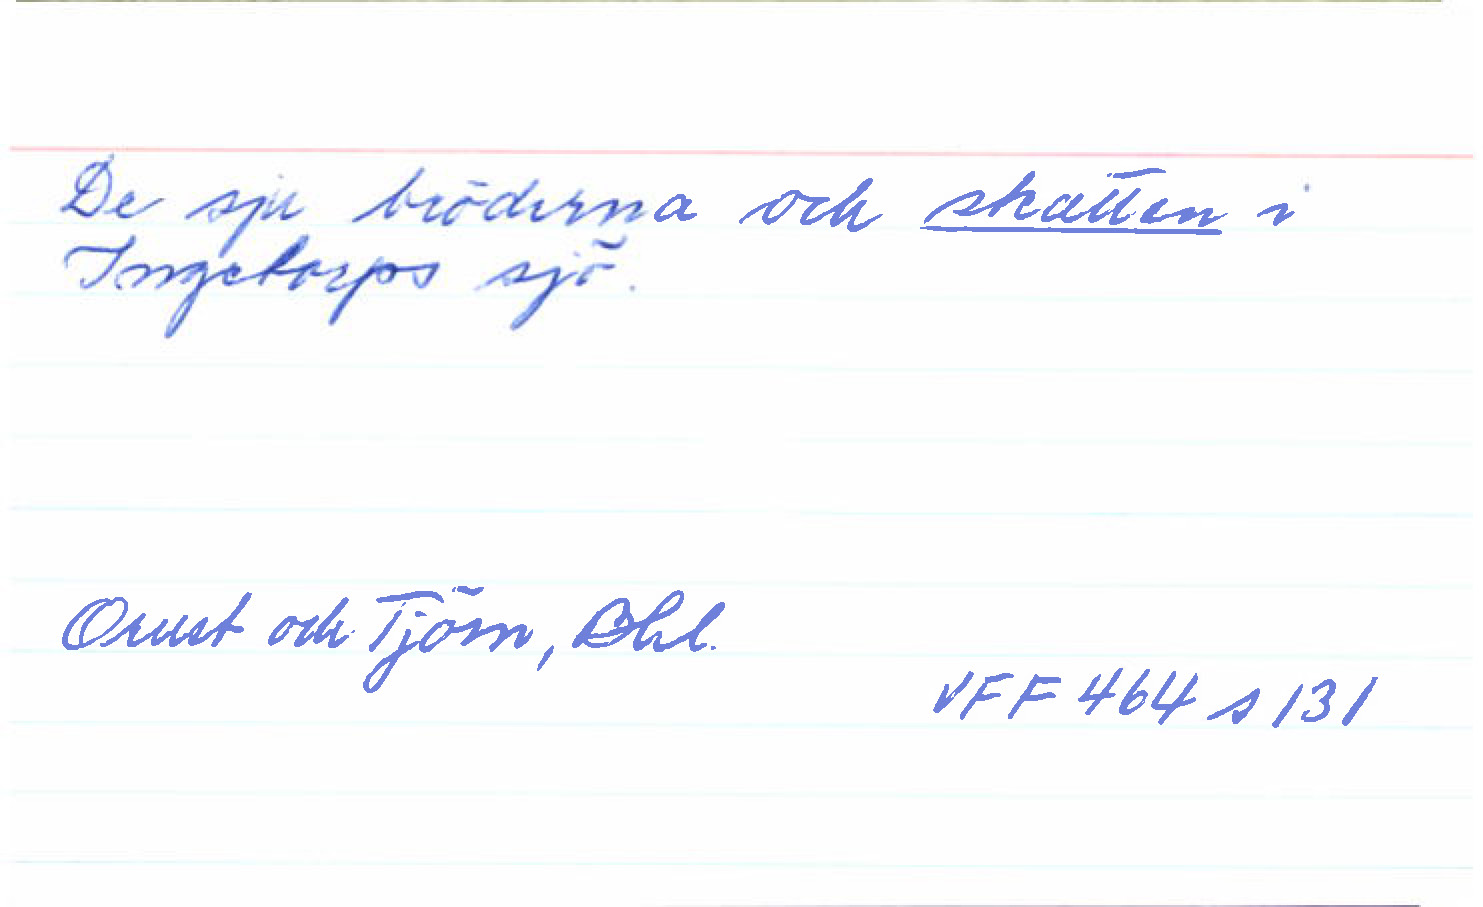 De sju bröderna och skatten i
Ingetorps sjö.
Orust och Tjörn, Bhl.
VFF 464 s 131